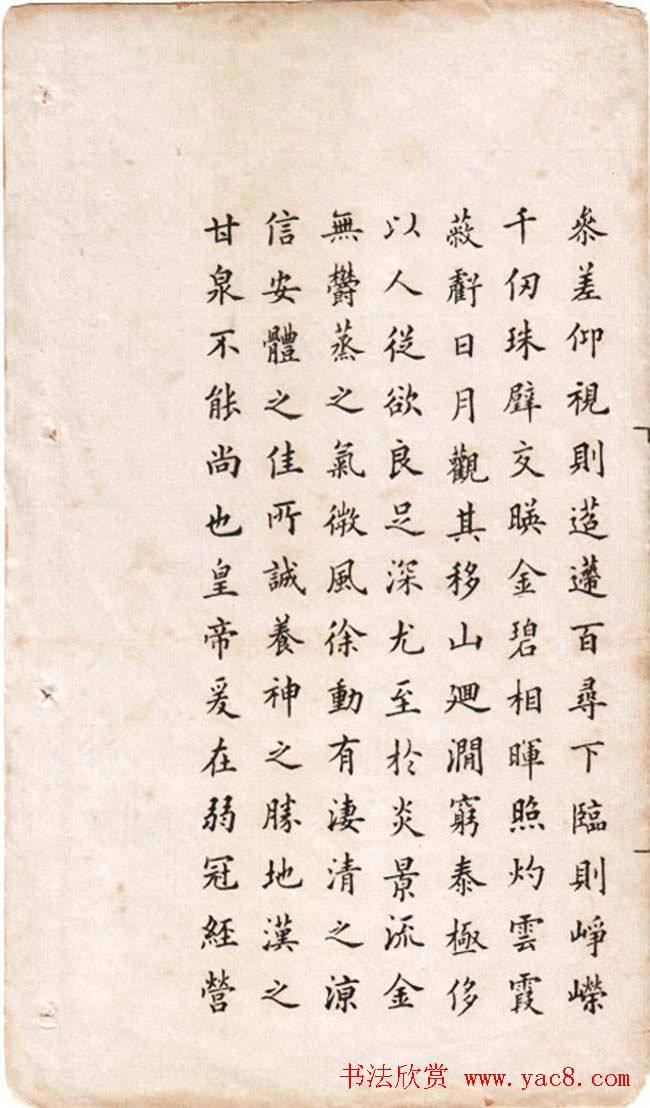 參差仰視則迢遰百尋下臨則崢嶸
千仞珠璧交暎金碧相暉照灼雲霞
蔽虧日月觀其移山廻澗窮泰極侈
以人從欲良足深尤至於炎景流金
無鬱蒸之氣微風徐動有淒清之涼
信安體之佳所誠養神之勝地漢之
甘泉不能尚也皇帝爰在弱冠經營
书法欣赏 www.yac8.com